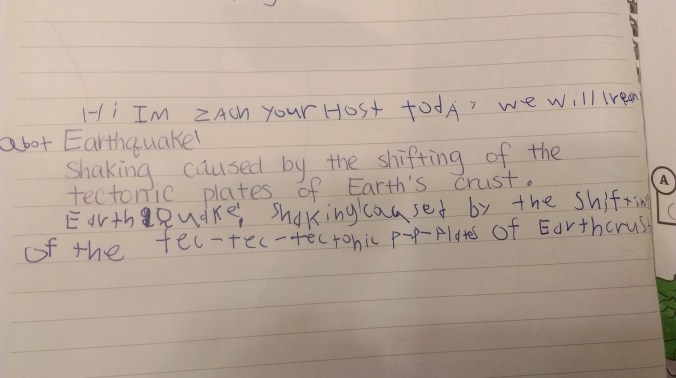 Hi IM ZACH YOUR HOST TODAY we will lrean
abot Earthquake!
Shaking caused by the shifting of the
tectonic plates of Earth's crust.
Earth Quake, Shaking caased by the Shifting
of the tec-tec-tectonic P-P-Plates of Earthcrust
A